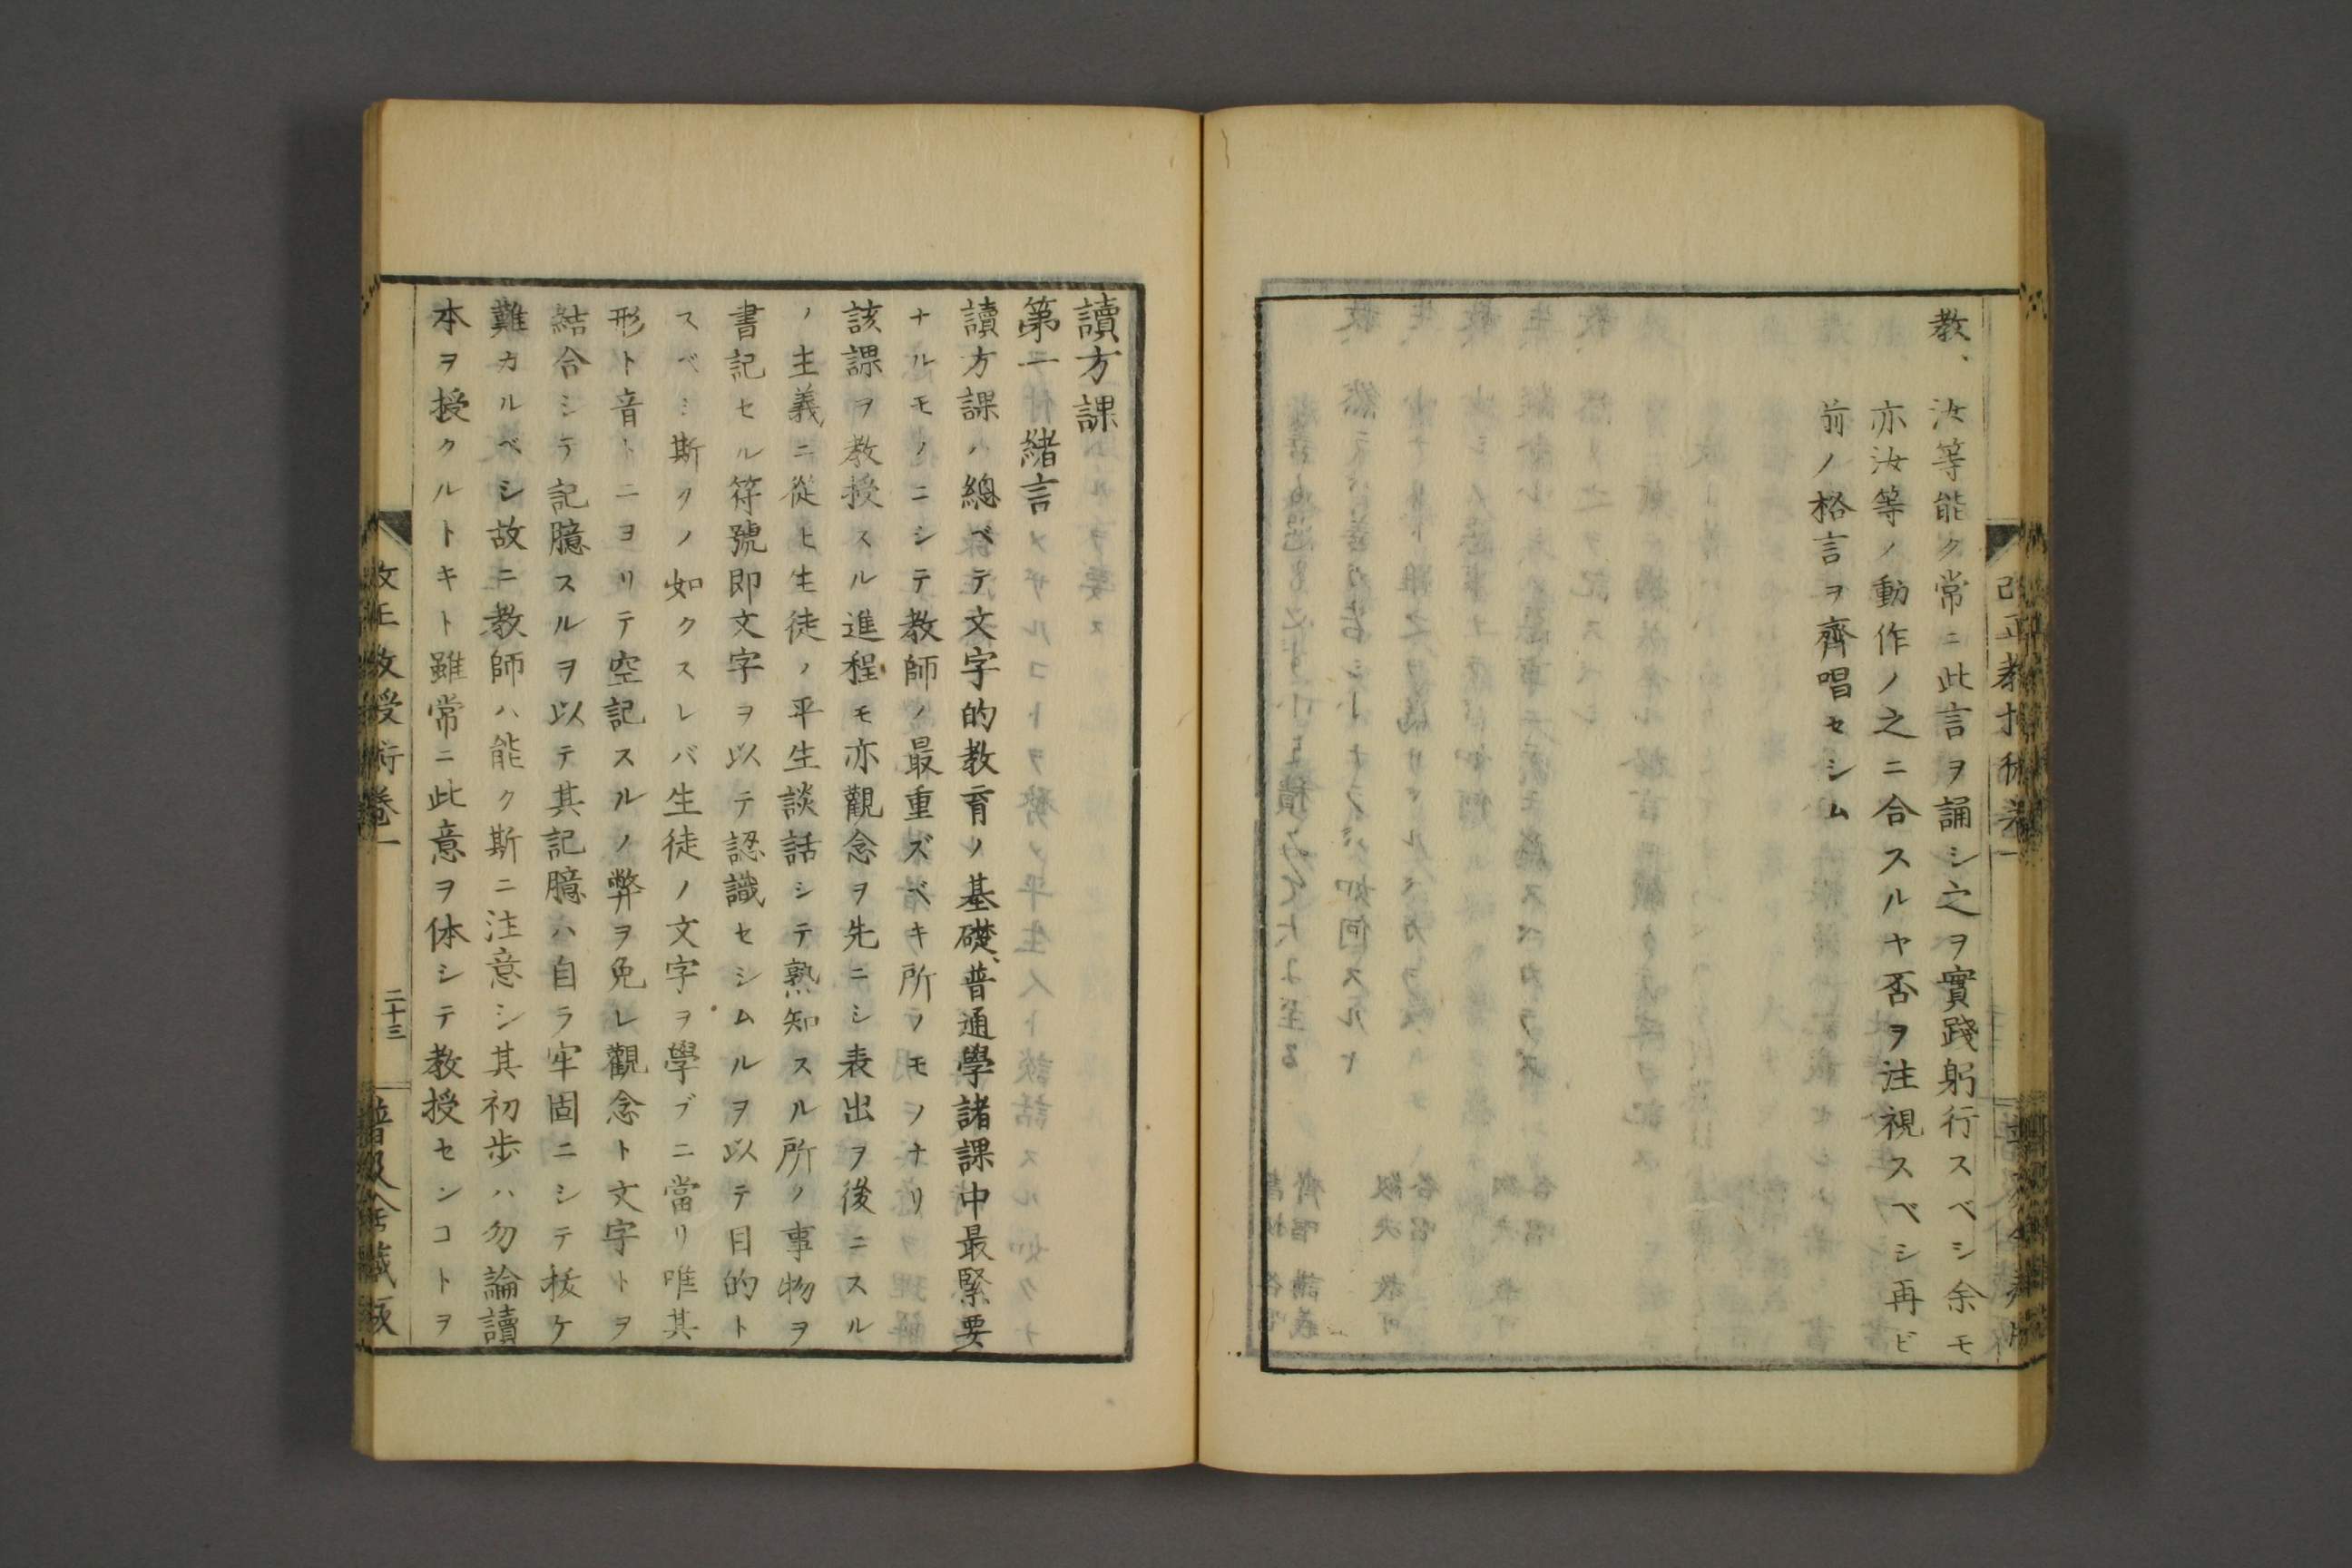 教、汝等能ク常ニ此言ヲ誦シ之ヲ實踐躬行スベシ余モ
亦汝等ノ動作ノ之ニ合スルヤ否ヲ注視スベシ再ビ
前ノ格言ヲ齊唱セシム
讀方課
第一 緒言
讀方課ハ總ベテ文字的教育ノ基礎、普通學諸課中最緊要
ナルモノニシテ教師ノ最重ズベキ所ノモノナリ
該課ヲ教授スル進程モ亦觀念ヲ先ニシ表出ヲ後ニスル
ノ主義ニ從ヒ生徒ノ平生談話シテ熟知スル所ノ事物ヲ
書記セル符號即文字ヲ以テ認識セシムルヲ以テ目的ト
スベシ斯クノ如クスレバ生徒ノ文字ヲ學ブニ當リ唯其
形ト音トニヨリテ空記スルノ弊ヲ免レ觀念ト文字トヲ
結合シテ記臆スルヲ以テ其記臆ハ自ラ牢固ニシテ拔ケ
難カルベシ故ニ教師ハ能ク斯ニ注意シ其初步ハ勿論讀
本ヲ授クルトキト雖常ニ此意ヲ体シテ教授センコトヲ
改正教授術卷一
二十三
普及舍藏版